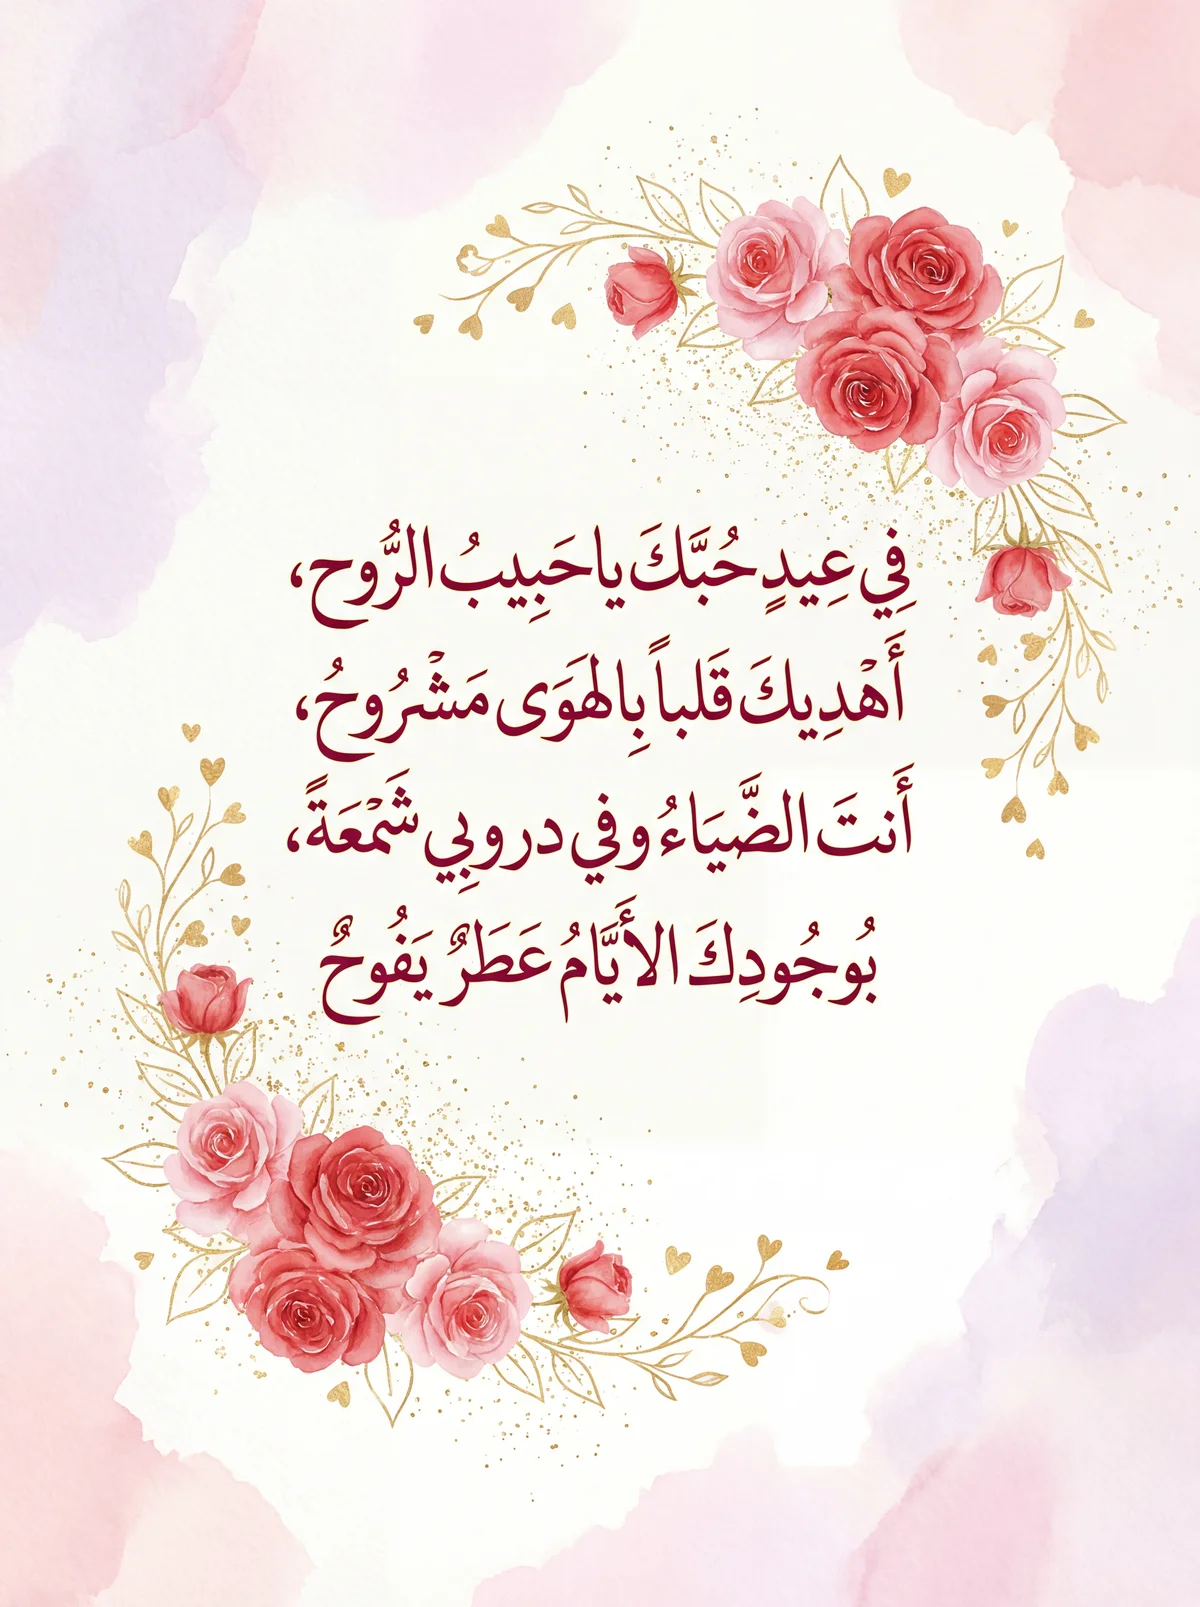 فِي عِيدٍ حُبَّكَ يا حَبِيبُ الرُّوح،
أَهْدِيكَ قَلباً بِالهَوَى مَشْرُوحُ،
أَنتَ الضَّيَاءُ وفي دروبِي شَمْعَةً،
بُوجُودِكَ الأَيَّامُ عَطَرٌ يَفُوحٌ